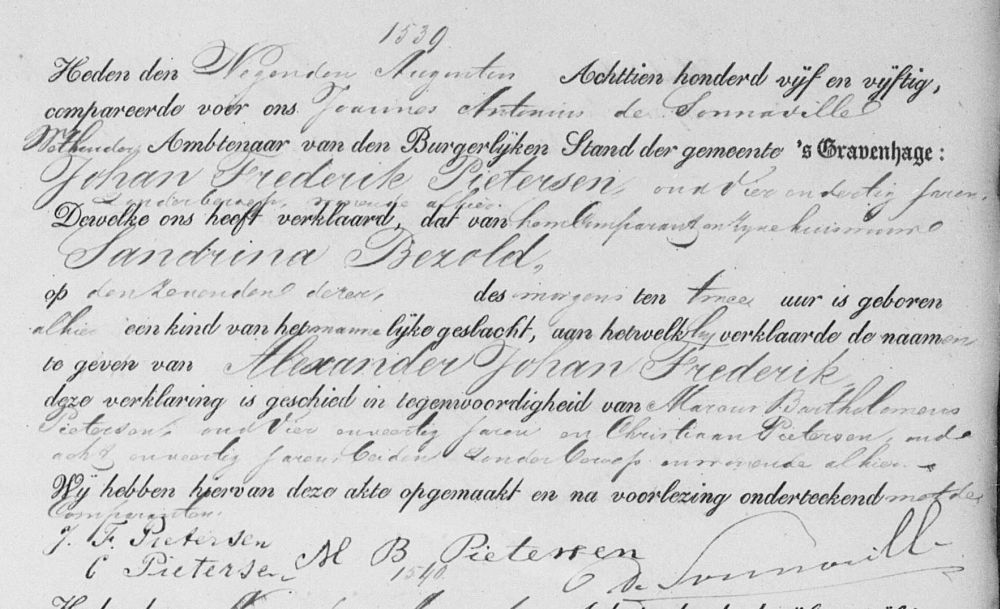 1539
Heden den Negenden Augustus Achttien honderd vijf en vijftig,
compareerde voor ons Joannes Antonius de Sonnaville
Wethouder Ambtenaar van den Burgerlijken Stand der gemeente 's Gravenhage:
Johan Frederik Pietersen, oud Vier en dertig Jaren,
zonder beroep, wonende alhier.
Dewelke ons heeft verklaard, dat van hem Comparant en zijne huisvrouw
Sandrina Bezold,
op den zevenden dezer, des morgens ten twee uur is geboren
alhier een kind van het mannelijke geslacht, aan hetwelk hij verklaarde de naamen
te geven van Alexander Johan Frederik,
deze verklaring is geschied in tegenwoordigheid van Marcus Bartholomeus
Pietersen, oud Vier en veertig Jaren en Christiaan Pietersen, oud
acht en veertig Jaren, beiden zonder beroep en wonende alhier.
Wij hebben hiervan deze akte opgemaakt en na voorlezing onderteekend met de
Comparanten.
J. F. Pietersen
C Pietersen M B Pietersen
de Sonnaville
1540.
Heden den